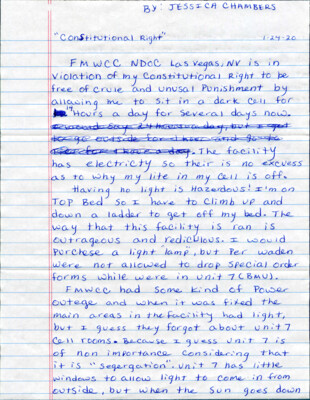 BY: JESSICA CHAMBERS
"Constitutional Right" 1-24-20
FMWCC NDOC Las Vegas, NV is in
Violation of my Constitutional Right to be
free of crule and unusal Punishment by
allowing me to sit in a dark cell for
19 Hours a day for several days now.
The facility
has electricty so their is no excuess
as to why my life in my cell is off.
Having no light is Hazerdous! I'm on
TOP Bed so I have to climb up and
down a ladder to get off my bed. The
way that this facility is ran is
outrageous and rediculous. I would
Purchese a light "lamp", but Per waden
were not allowed to drop special order
forms while were in unit 7 (BMU).
FMWCC had some kind of Power
outege and when it was fixed the
main areas in the facility had light,
but I guess they forgot about unit 7
cell rooms. Because I guess unit 7 is
of non importance considering that
it is "segergation". unit 7 has little
windows to allow light to come in from
outside, but when the sun goes down